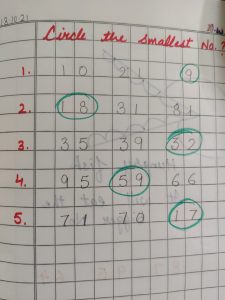 13.10.21
Circle the smallest No. ?
1. 10 21 9
2. 18 31 81
3. 35 39 32
4. 95 59 66
5. 71 70 17